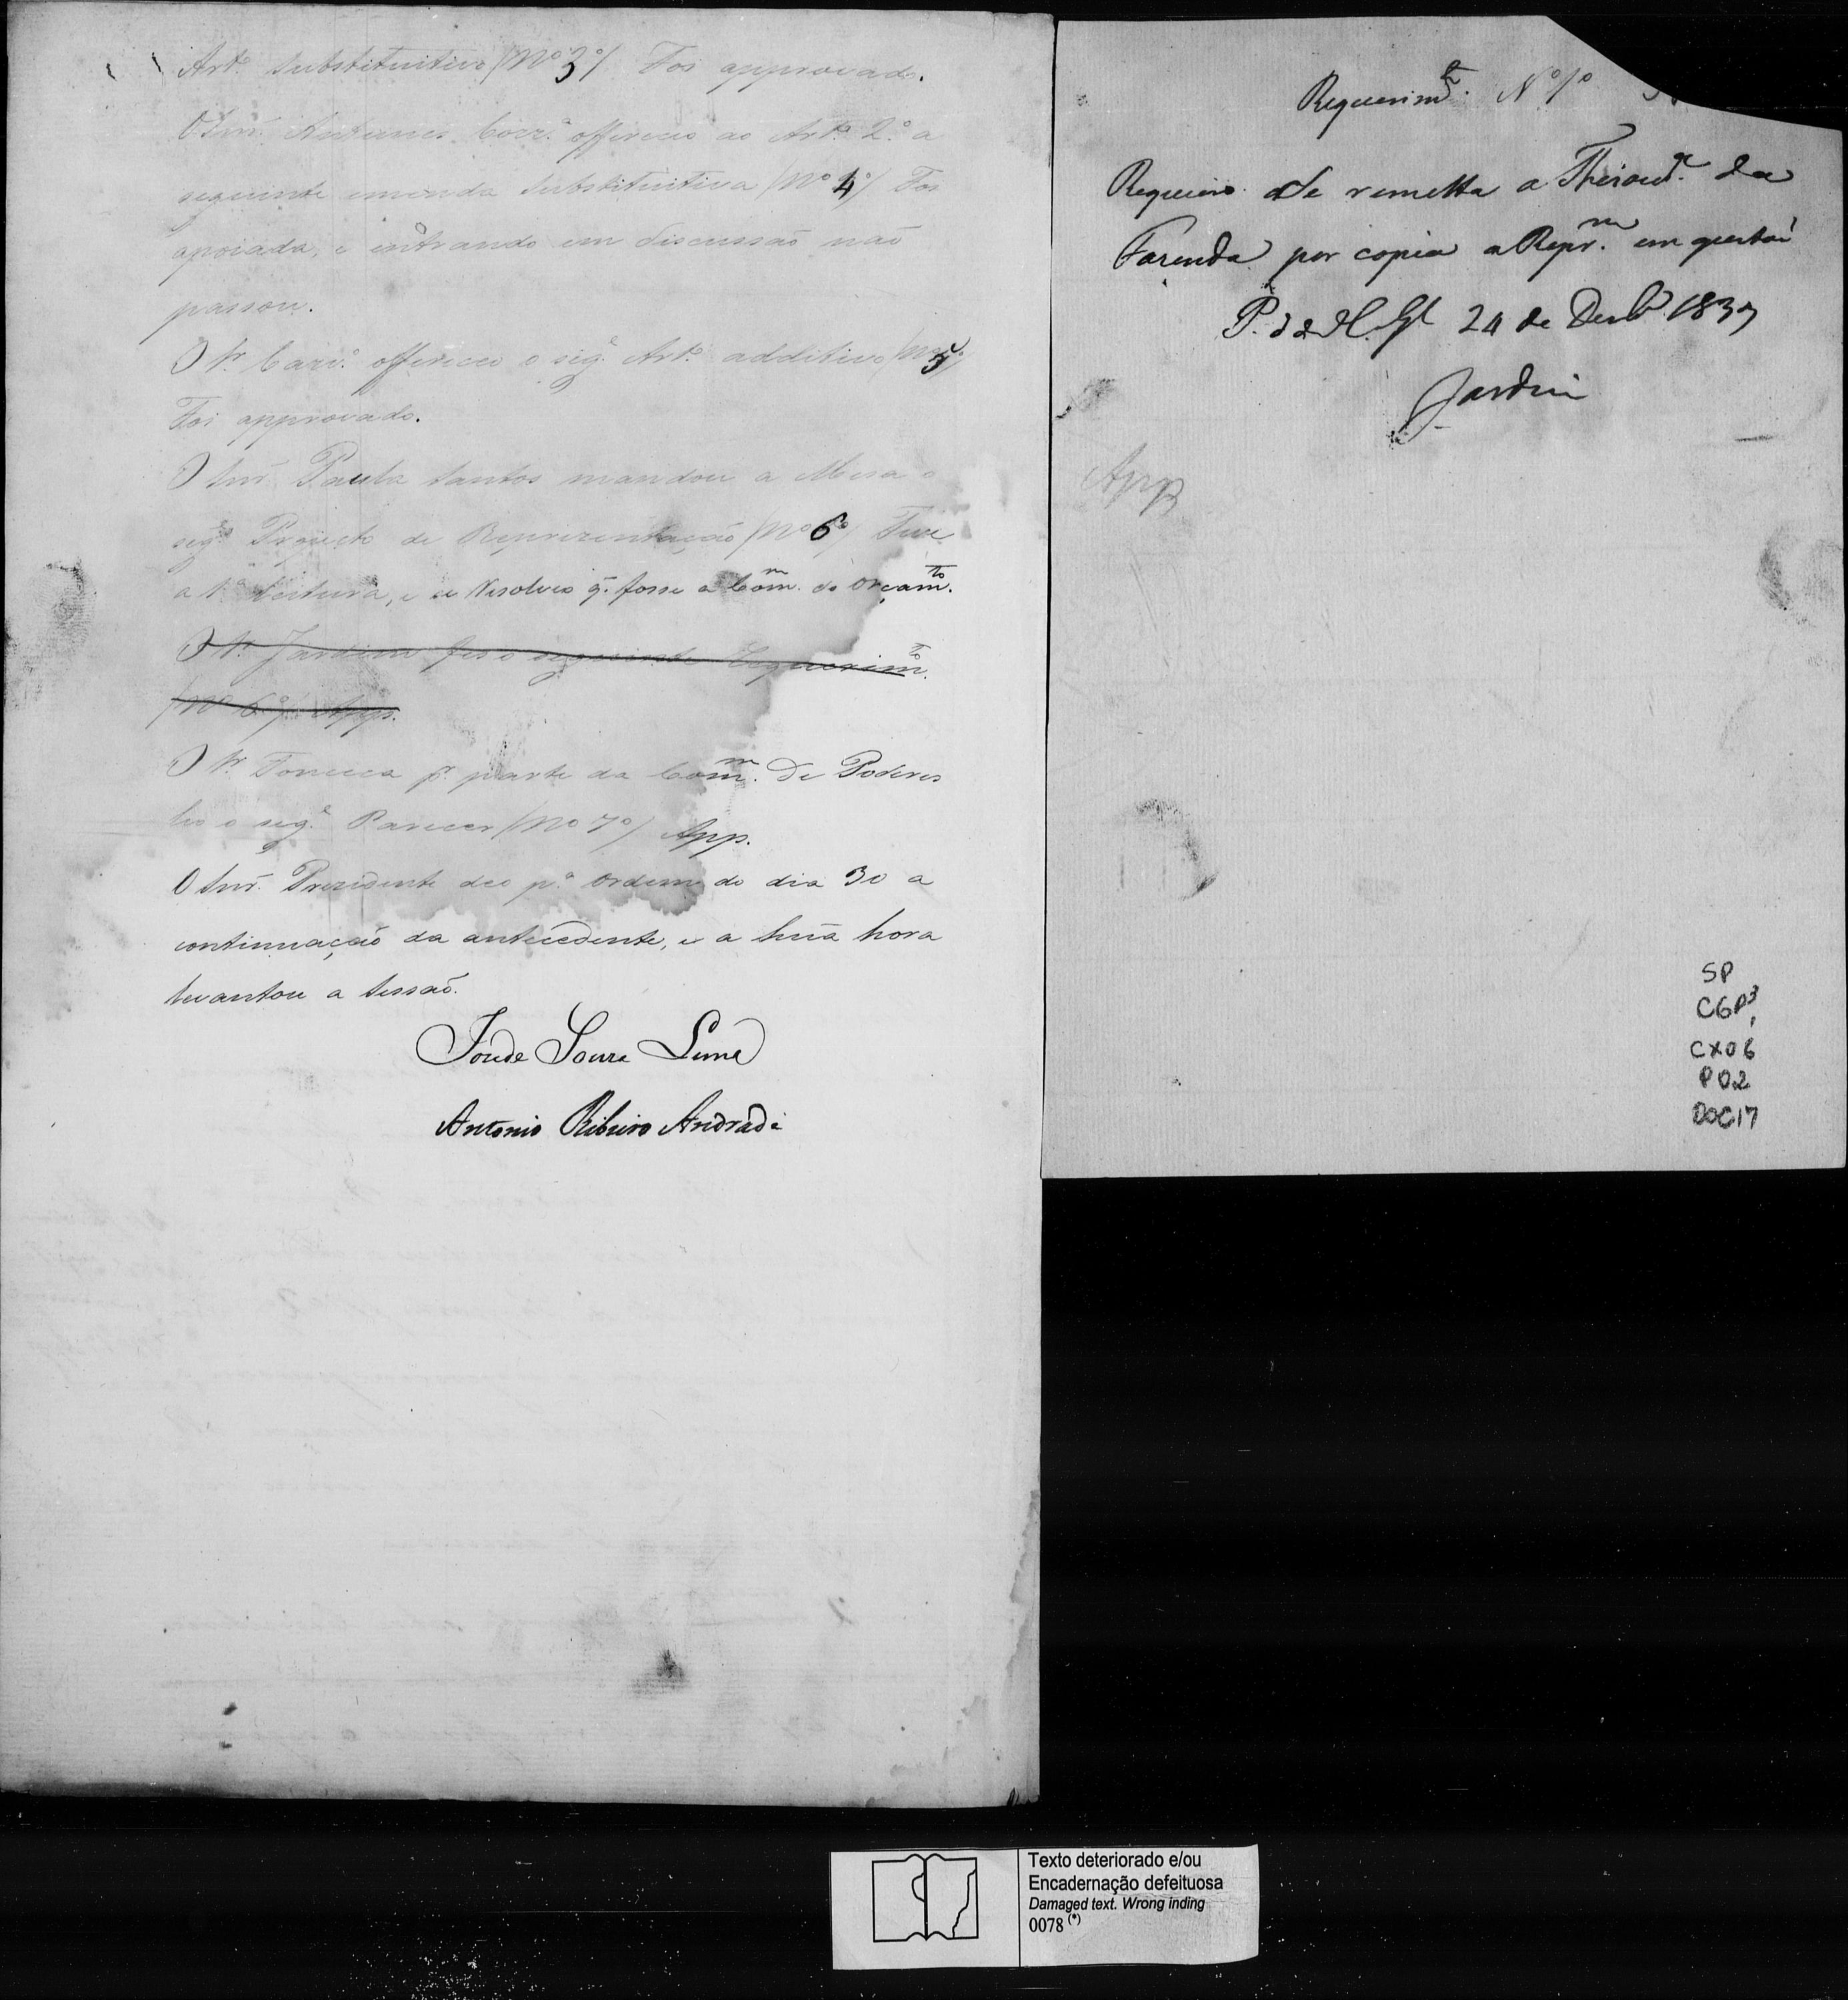 Art.º Substitutivo (Nº 3º) Foi approvado.
O Snr. Antunes Corr.ª offereceo ao Art.º 2.º a
seguinte emenda Substitutiva (Nº 4º) Foi
apoiada, e entrando em discussaõ naõ
passou.
O Sr. Carv.º offereceo o seg.e Art.º additivo (Nº 5º)
Foi approvado.
O Snr. Paula Santos mandou a Mesa o
seg.e Projecto de Reprezentação (Nº 6º) Teve
a 1.ª Leitura, e se resolveo q. fosse a Com.m do Orçam.to
O Sr. Jardim fes o seguinte Requerim.to
(Nº 6.º) App.
O Sr. Fonceca p.r parte da Com.m De Poderes
leo o seg.e Parecer (Nº 7º) App.
O Snr. Prezidente deo p.ª ordem do dia 30 a
continuação da antecedente, e a huã hora
levantou a Sessaõ.
Joze de Souza Lima
Antonio Ribeiro Andrade
Requerim.to Nº 1º
Requeiro Se remetta a Thezour.ª da
Fazenda por copia a Repr.m em questaõ
P. da A. L. 24 de Dezb.º 1837
Jardim
App
SP
CGP3,
CX06
P02
DOC17
Texto deteriorado e/ou
Encadernação defeituosa
Damaged text. Wrong inding
0078 (*)